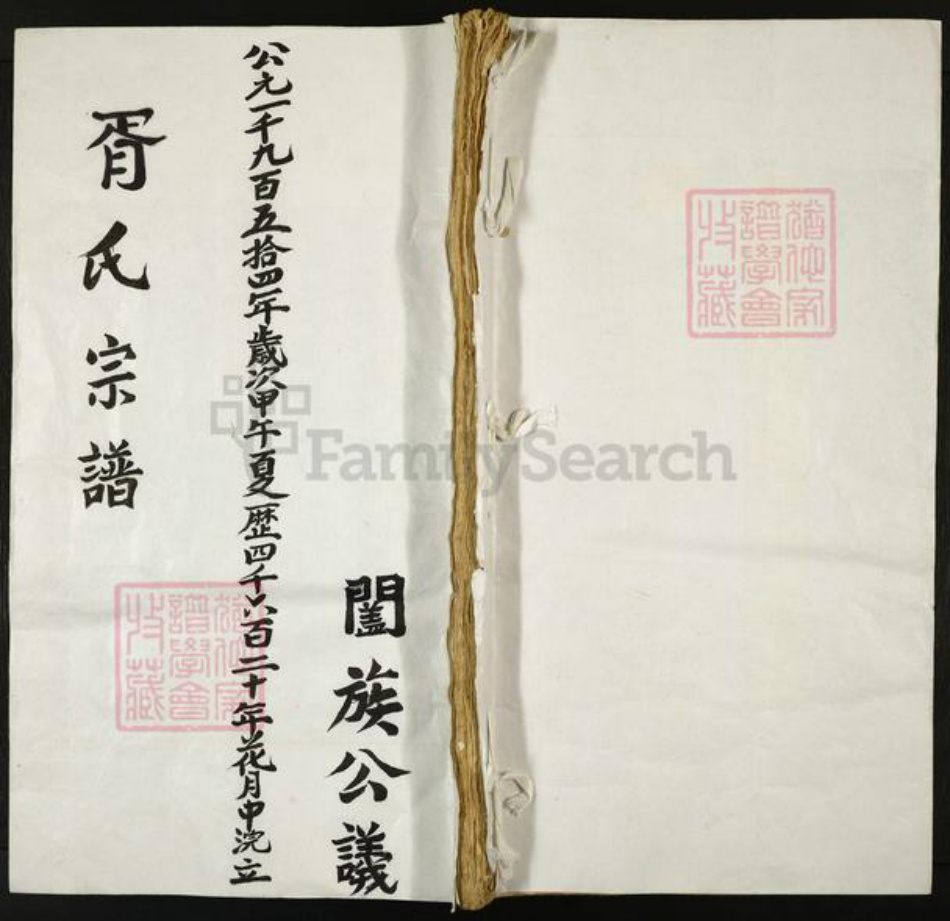 胥氏宗譜
公元一千九百五拾四年歲次甲午夏歷四千六百二十年花月中浣立
闔族公議
猶他家譜學會收藏
猶他家譜學會收藏
FamilySearch